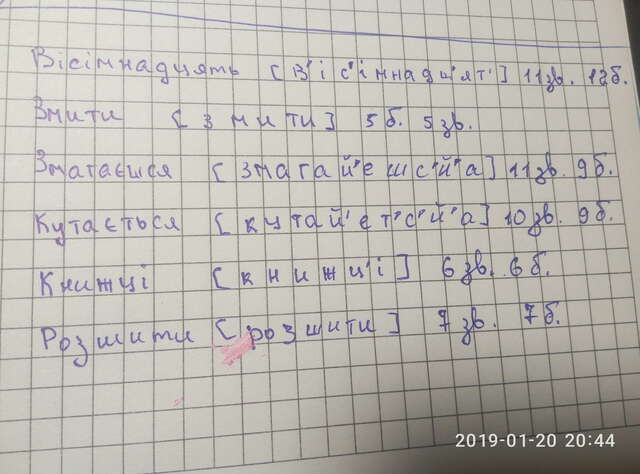 Вісімнадцять [в' і с' і м н а д ц' а т'] 11 зв. 12 б.
Змити [з м и т и] 5 б. 5 зв.
Змагаєшся [з м а г а й' е ш с' й' а] 11 зв. 9 б.
Кутається [к у т а й' е т' с' й' а] 10 зв. 9 б.
Книжці [к н и ж ц' і] 6 зв. 6 б.
Розшити [р о з ш и т и] 7 зв. 7 б.
2019-01-20 20:44